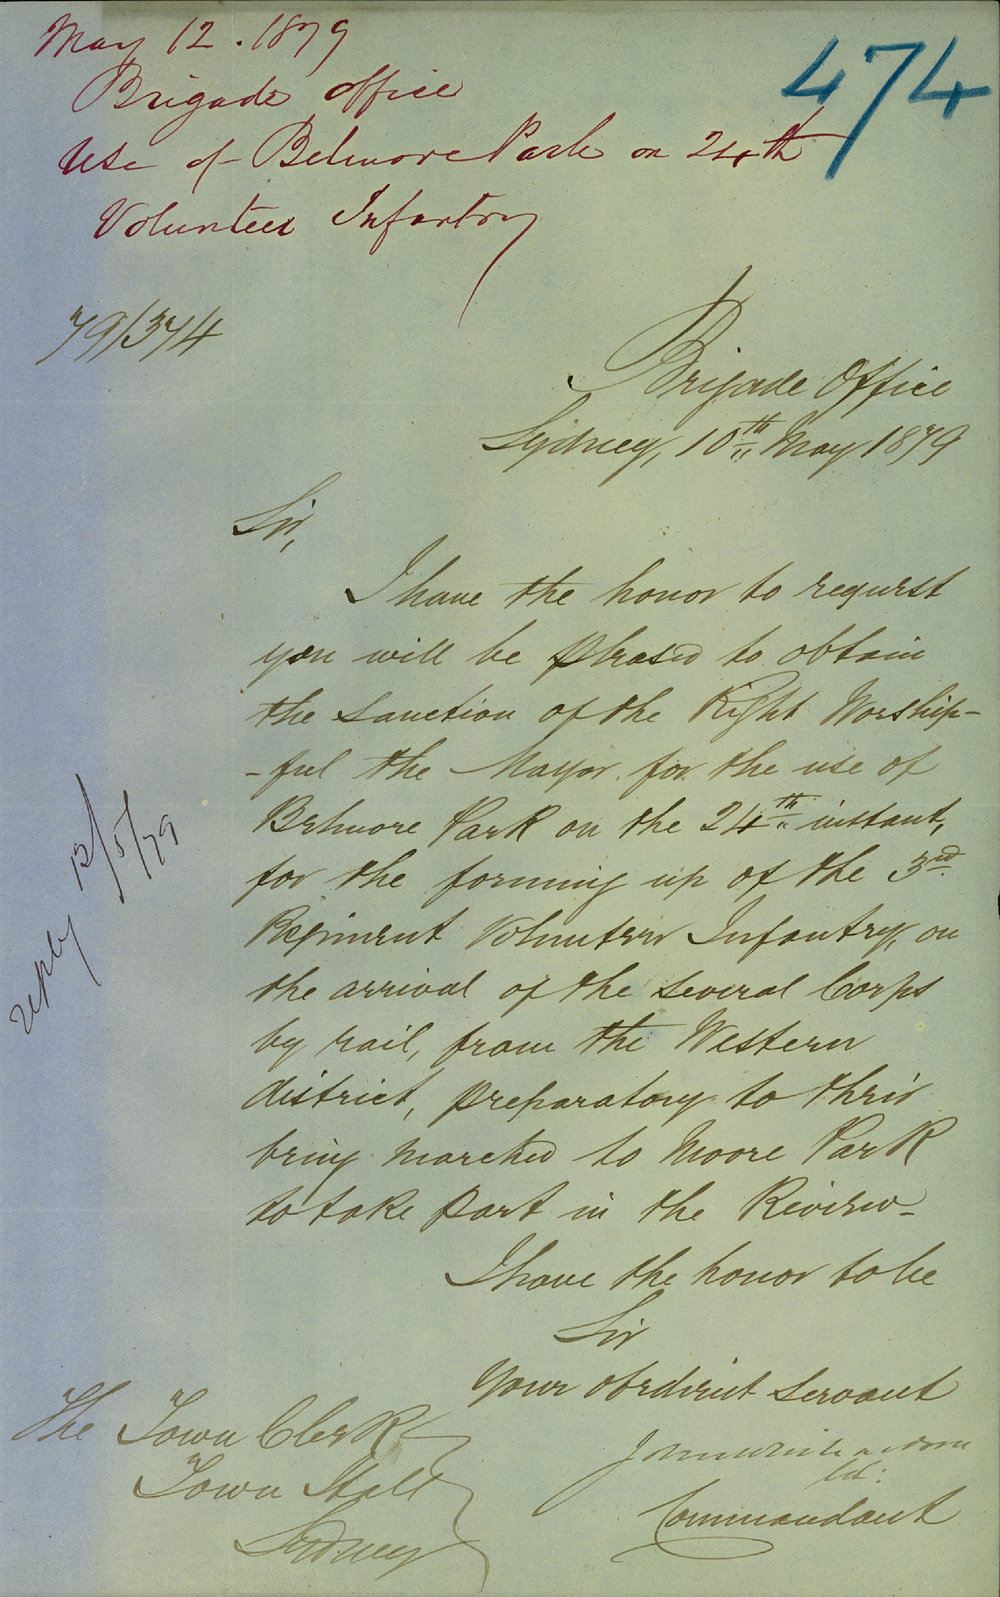 May 12. 1879
474
Brigade Office
Use of Belmore Park on 24th
Volunteer Infantry
79/374
Brigade Office
Sydney, 10th May 1879
Sir,
I have the honor to request
you will be pleased to obtain
the sanction of the Right Worship-
-ful the Mayor for the use of
Belmore Park on the 24th instant,
for the forming up of the 3rd
Regiment Volunteer Infantry, on
the arrival of the several Corps
by rail, from the Western
district, preparatory to their
being marched to Moore Park
to take part in the Review_
I have the honor to be
Sir
Your obedient servant
John Richardson
Col:
Commandant
The Town Clerk
Town Hall
Sydney
reply 12/5/79